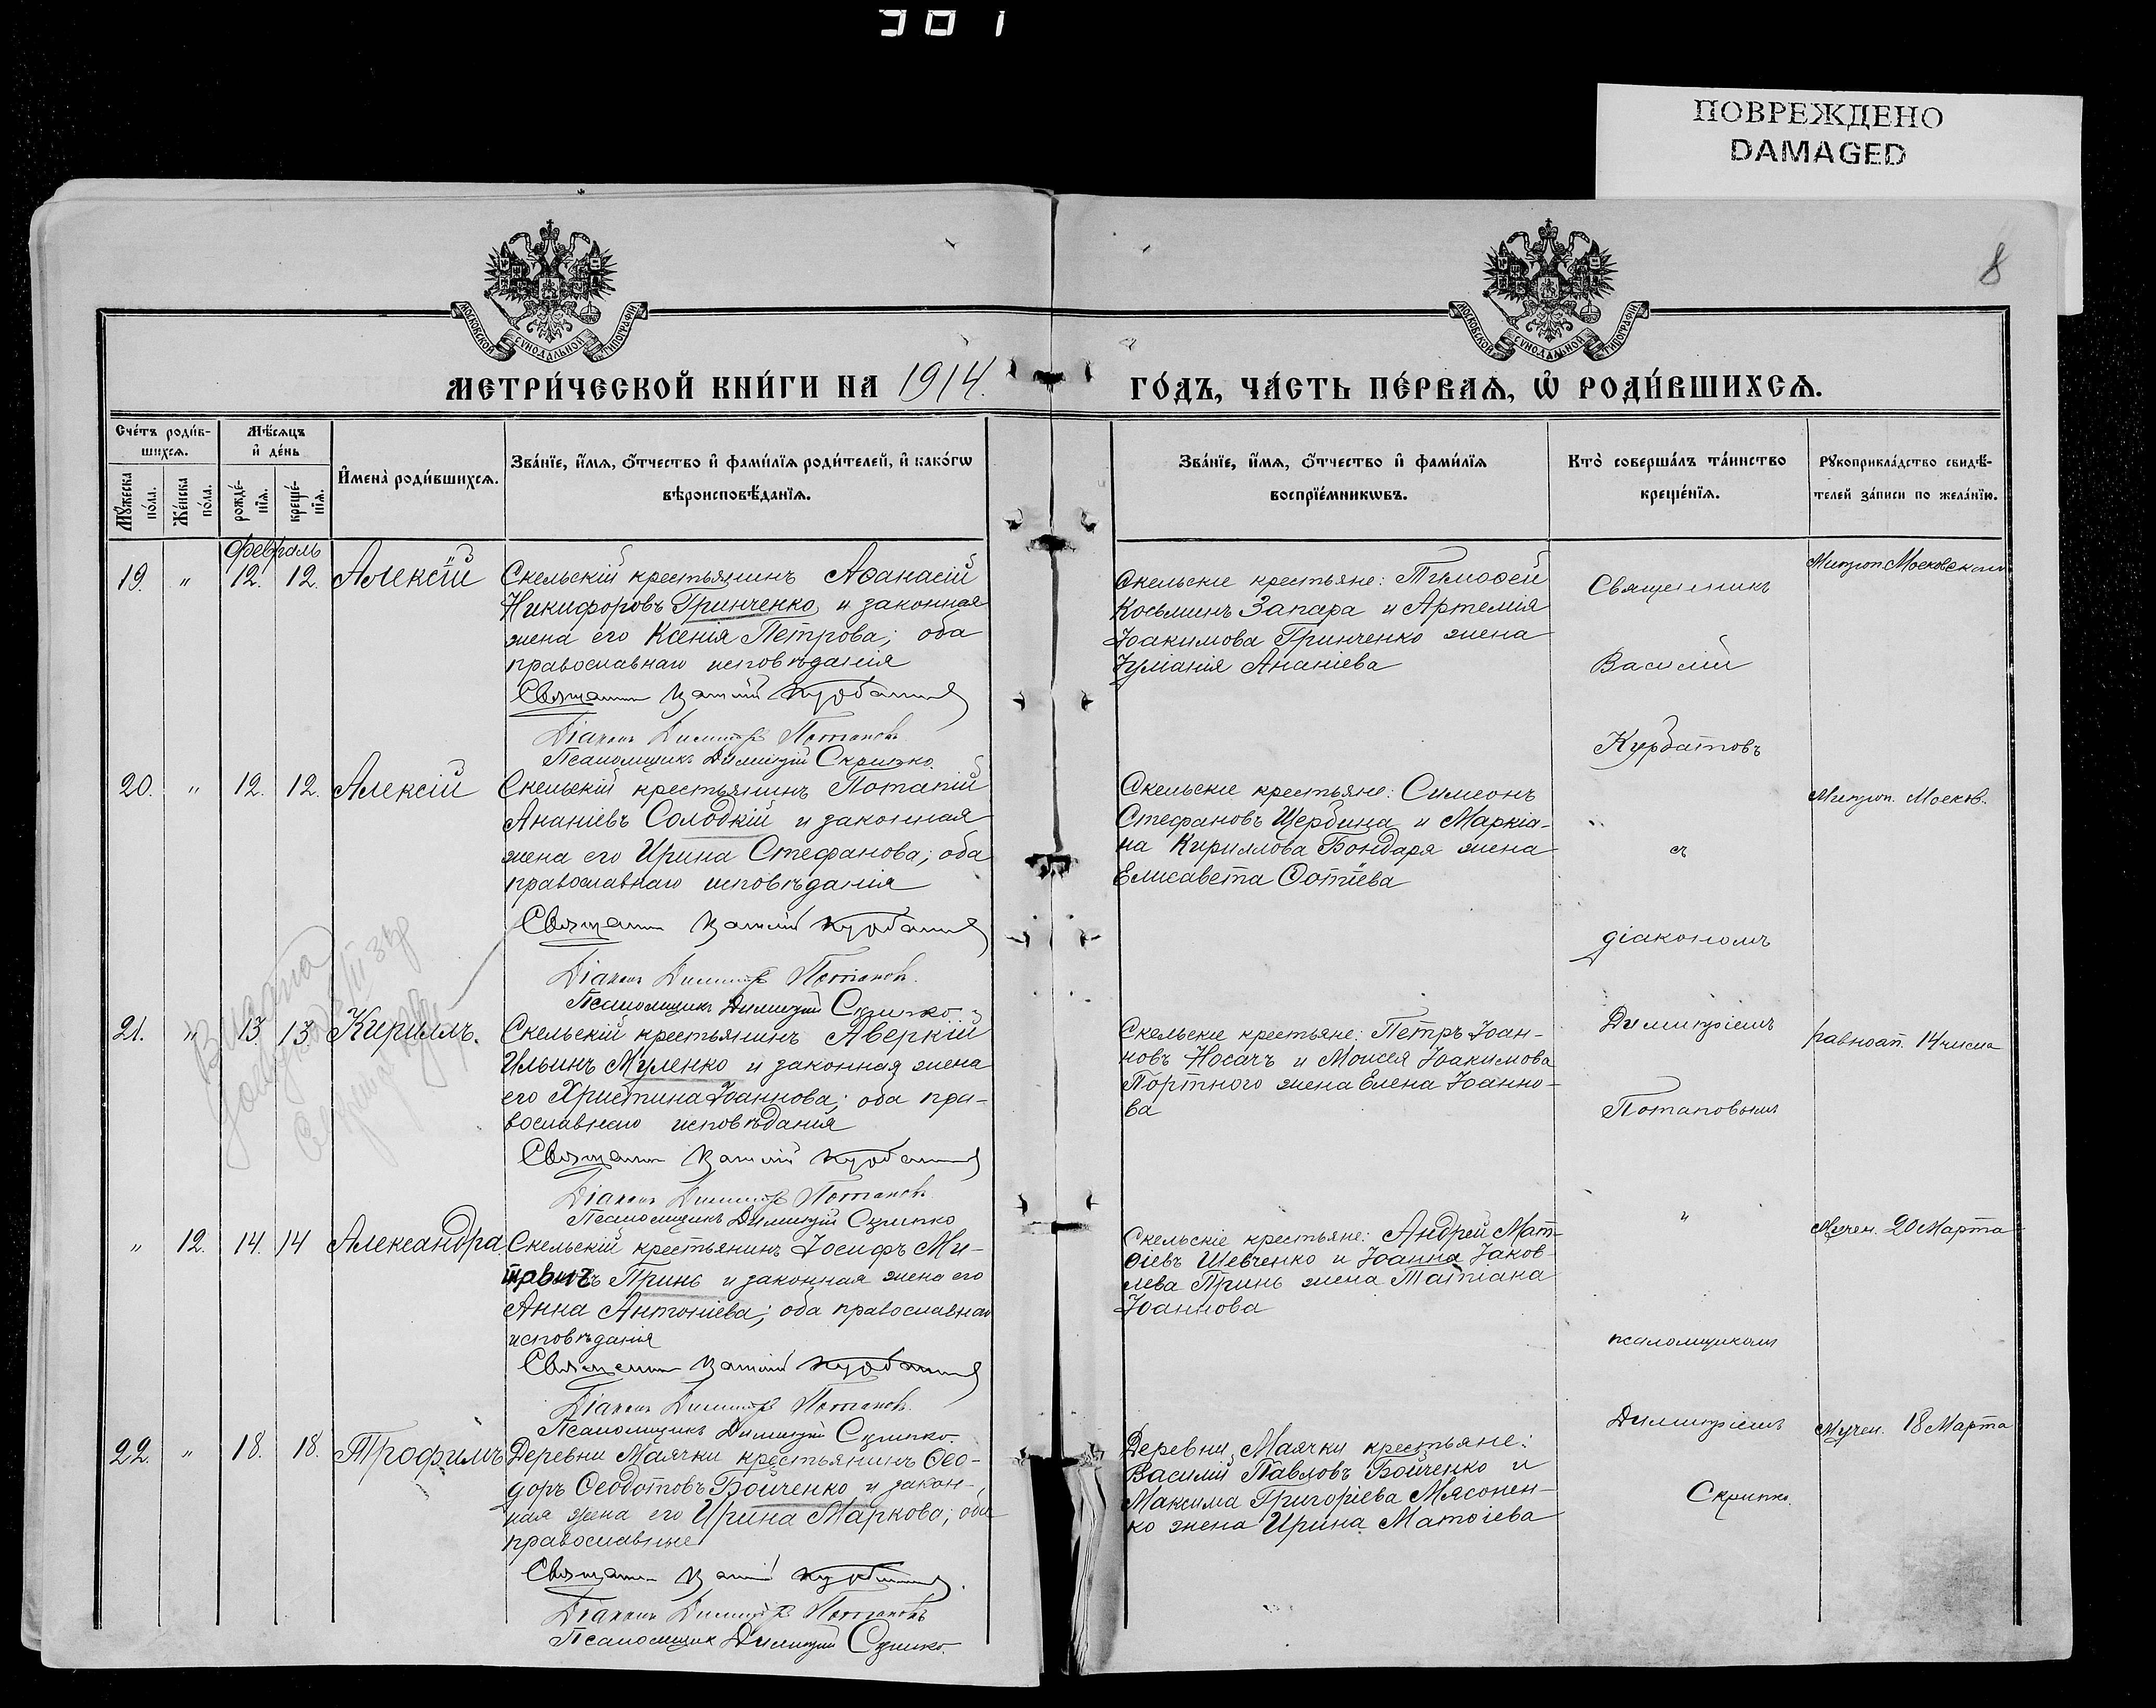 301
ПОВРЕЖДЕНО
DAMAGED
8
МОСКОВСКОЙ СѴНОДАЛЬНОЙ ТИПОГРАФІИ
МОСКОВСКОЙ СѴНОДАЛЬНОЙ ТИПОГРАФІИ
МЕТРИ́ЧЕСКОЙ КНИ́ГИ НА 1914.
ГО́ДЪ, ЧА́СТЬ ПЕ́РВАѦ, Ѡ҆ РОДИ́ВШИХСѦ.
Сче́тъ роди́в-
шихсѧ.
Мѣ́сѧцъ
и҆ де́нь
Мꙋ́жеска
по́ла.
Же́нска
по́ла.
рожде́-
нїѧ.
креще́-
нїѧ.
И҆мена̀ роди́вшихсѧ.
Зва́нїе, и҆́мѧ, ѻ҆́тчество и҆ фами́лїѧ роди́телей, и҆ како́гѡ
вѣроисповѣ́данїѧ.
Зва́нїе, и҆́мѧ, ѻ҆́тчество и҆ фами́лїѧ
воспрїе́мникѡвъ.
Кто̀ соверша́лъ та́инство
креще́нїѧ.
Рꙋкоприкла́дство свидѣ́-
телей за́писи по жела́нїю.
Февраль
19. " 12. 12. Алексій
Скельскій крестьянинъ Аѳанасій
Никифоровъ Гринченко и законная
жена его Ксенія Петрова; оба
православнаго исповѣданія
Священникъ Василій Курбатовъ
Діаконъ Димитрій Потаповъ
Псаломщикъ Димитрій Скрипко.
Скельскіе крестьяне: Тимоѳей
Косьминъ Запара и Артемія
Іоакимова Гринченко жена
Іуліанія Ананіева
Священникъ
Василій
Курбатовъ
Митроп. Московскаго
20. " 12. 12. Алексій
Скельскій крестьянинъ Потапій
Ананіевъ Солодкій и законная
жена его Ирина Стефанова; оба
православнаго исповѣданія
Священникъ Василій Курбатовъ
Діаконъ Димитрій Потаповъ.
Псаломщикъ Димитрій Скрипко.
Скельскіе крестьяне: Симеонъ
Стефановъ Щербина и Маркіа-
на Кириллова Бондаря жена
Елисавета Фотіева
съ
діакономъ
Митроп. Москов.
21. " 13 13 Кириллъ.
Скельскій крестьянинъ Аверкій
Ильинъ Муленко и законная жена
его Христина Іоаннова; оба пра-
вославнаго исповѣданія
Священникъ Василій Курбатовъ
Діаконъ Димитрій Потаповъ
Псаломщикъ Димитрій Скрипко
Скельскіе крестьяне: Петръ Іоан-
новъ Носачъ и Моисея Іоакимова
Портного жена Елена Іоанно-
ва
Димитріемъ
Потаповымъ
равноап. 14 числа
" 12. 14. 14 Александра
Скельскій крестьянинъ Іосифъ Ми-
Принь и законная жена его
Анна Антоніева; оба православнаго
исповѣданія
Священникъ Василій Курбатовъ
Діаконъ Димитрій Потаповъ.
Псаломщикъ Димитрій Скрипко
Скельскіе крестьяне: Андрей Мат-
ѳіевъ Шевченко и Іоанна Іаков-
лева Принь жена Татіана
Іоаннова
"
псаломщикомъ
Мучен. 20 Марта
22. " 18. 18. Трофимъ
Деревни Маячки крестьянинъ Ѳео-
доръ Ѳеодотовъ Бойченко и закон-
ная жена его Ирина Маркова; оба
православные
Священникъ Василій Курбатовъ.
Діаконъ Димитрій Потаповъ
Псаломщикъ Димитрій Скрипко.
Деревни Маячки крестьяне:
Василій Павловъ Бойченко и
Максима Григоріева Мясонен-
ко жена Ирина Матѳіева
Димитріемъ
Скрипко.
Мучен. 18 Марта